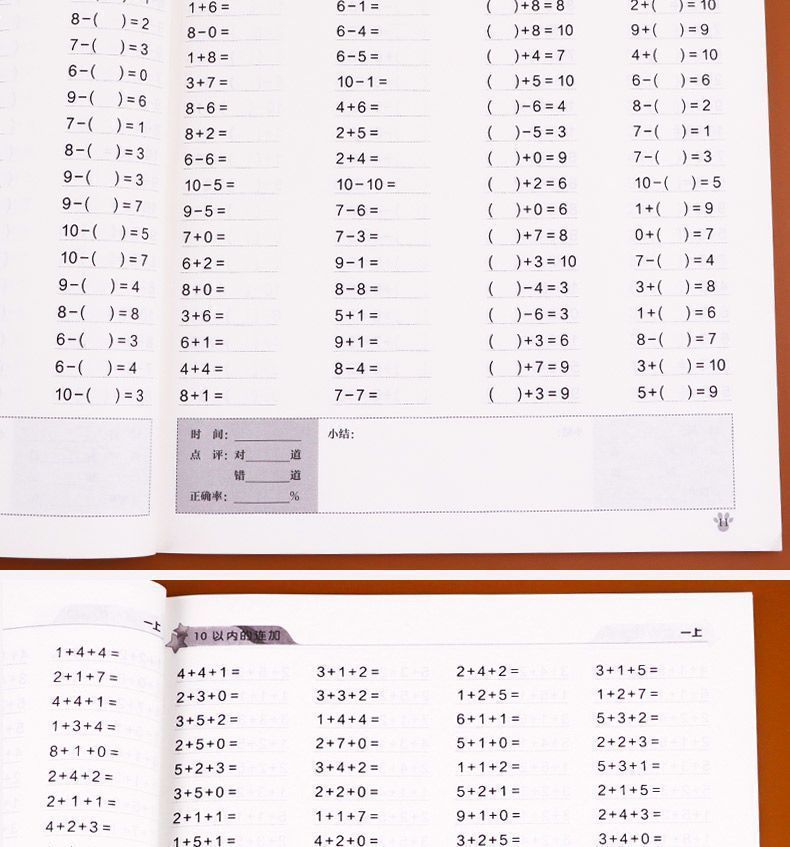 8-( )=2
7-( )=3
6-( )=0
9-( )=6
7-( )=1
8-( )=3
9-( )=3
9-( )=7
10-( )=5
10-( )=7
9-( )=4
8-( )=8
6-( )=3
6-( )=4
10-( )=3
1+6= 6-1= ( )+8=8 2+( )=10
8-0= 6-4= ( )+8=10 9+( )=9
1+8= 6-5= ( )+4=7 4+( )=10
3+7= 10-1= ( )+5=10 6-( )=6
8-6= 4+6= ( )-6=4 8-( )=2
8+2= 2+5= ( )-5=3 7-( )=1
6-6= 2+4= ( )+0=9 7-( )=3
10-5= 10-10= ( )+2=6 10-( )=5
9-5= 7-6= ( )+0=6 1+( )=9
7+0= 7-3= ( )+7=8 0+( )=7
6+2= 9-1= ( )+3=10 7-( )=4
8+0= 8-8= ( )-4=3 3+( )=8
3+6= 5+1= ( )-6=3 1+( )=6
6+1= 9+1= ( )+3=6 8-( )=7
4+4= 8-4= ( )+7=9 3+( )=10
8+1= 7-7= ( )+3=9 5+( )=9
时 间: 小结:
点 评: 对 道
错 道
正确率: %
11
一上
1+4+4=
2+1+7=
4+4+1=
1+3+4=
8+1+0=
2+4+2=
2+1+1=
4+2+3=
10 以内的连加 一上
4+4+1= 3+1+2= 2+4+2= 3+1+5=
2+3+0= 3+3+2= 1+2+5= 1+2+7=
3+5+2= 1+4+4= 6+1+1= 5+3+2=
2+5+0= 2+7+0= 5+1+0= 2+2+3=
5+2+3= 3+4+2= 1+1+2= 5+3+1=
3+5+0= 2+2+0= 5+2+1= 2+1+5=
2+1+1= 1+1+7= 9+1+0= 2+4+3=
1+5+1= 4+2+0= 3+2+5= 3+4+0=